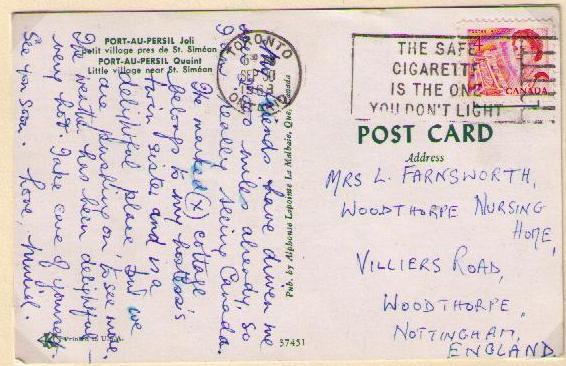 PORT-AU-PERSIL Joli
Petit village pres de St. Siméon
PORT-AU-PERSIL Quaint
Little village near St. Siméon
friends have driven me
miles already, so
I'm really seeing Canada.
The marked (X) cottage
belongs to my hostess's
twin sister and is a
delightful place. But we
are dashing on, to see more.
The weather has been delightful –
very hot. Take care of yourself.
See you soon. Love, Muriel.
Pub. by Alphonse Lapointe La Malbaie, Que. Canada
Printed in U.S.A.
37451
TORONTO
SEP 30
THE SAFE
CIGARETTE
IS THE ONE
YOU DON'T LIGHT
CANADA
POST CARD
Address
MRS L. FARNSWORTH,
WOODTHORPE NURSING
HOME,
VILLIERS ROAD,
WOODTHORPE
NOTTINGHAM,
ENGLAND.